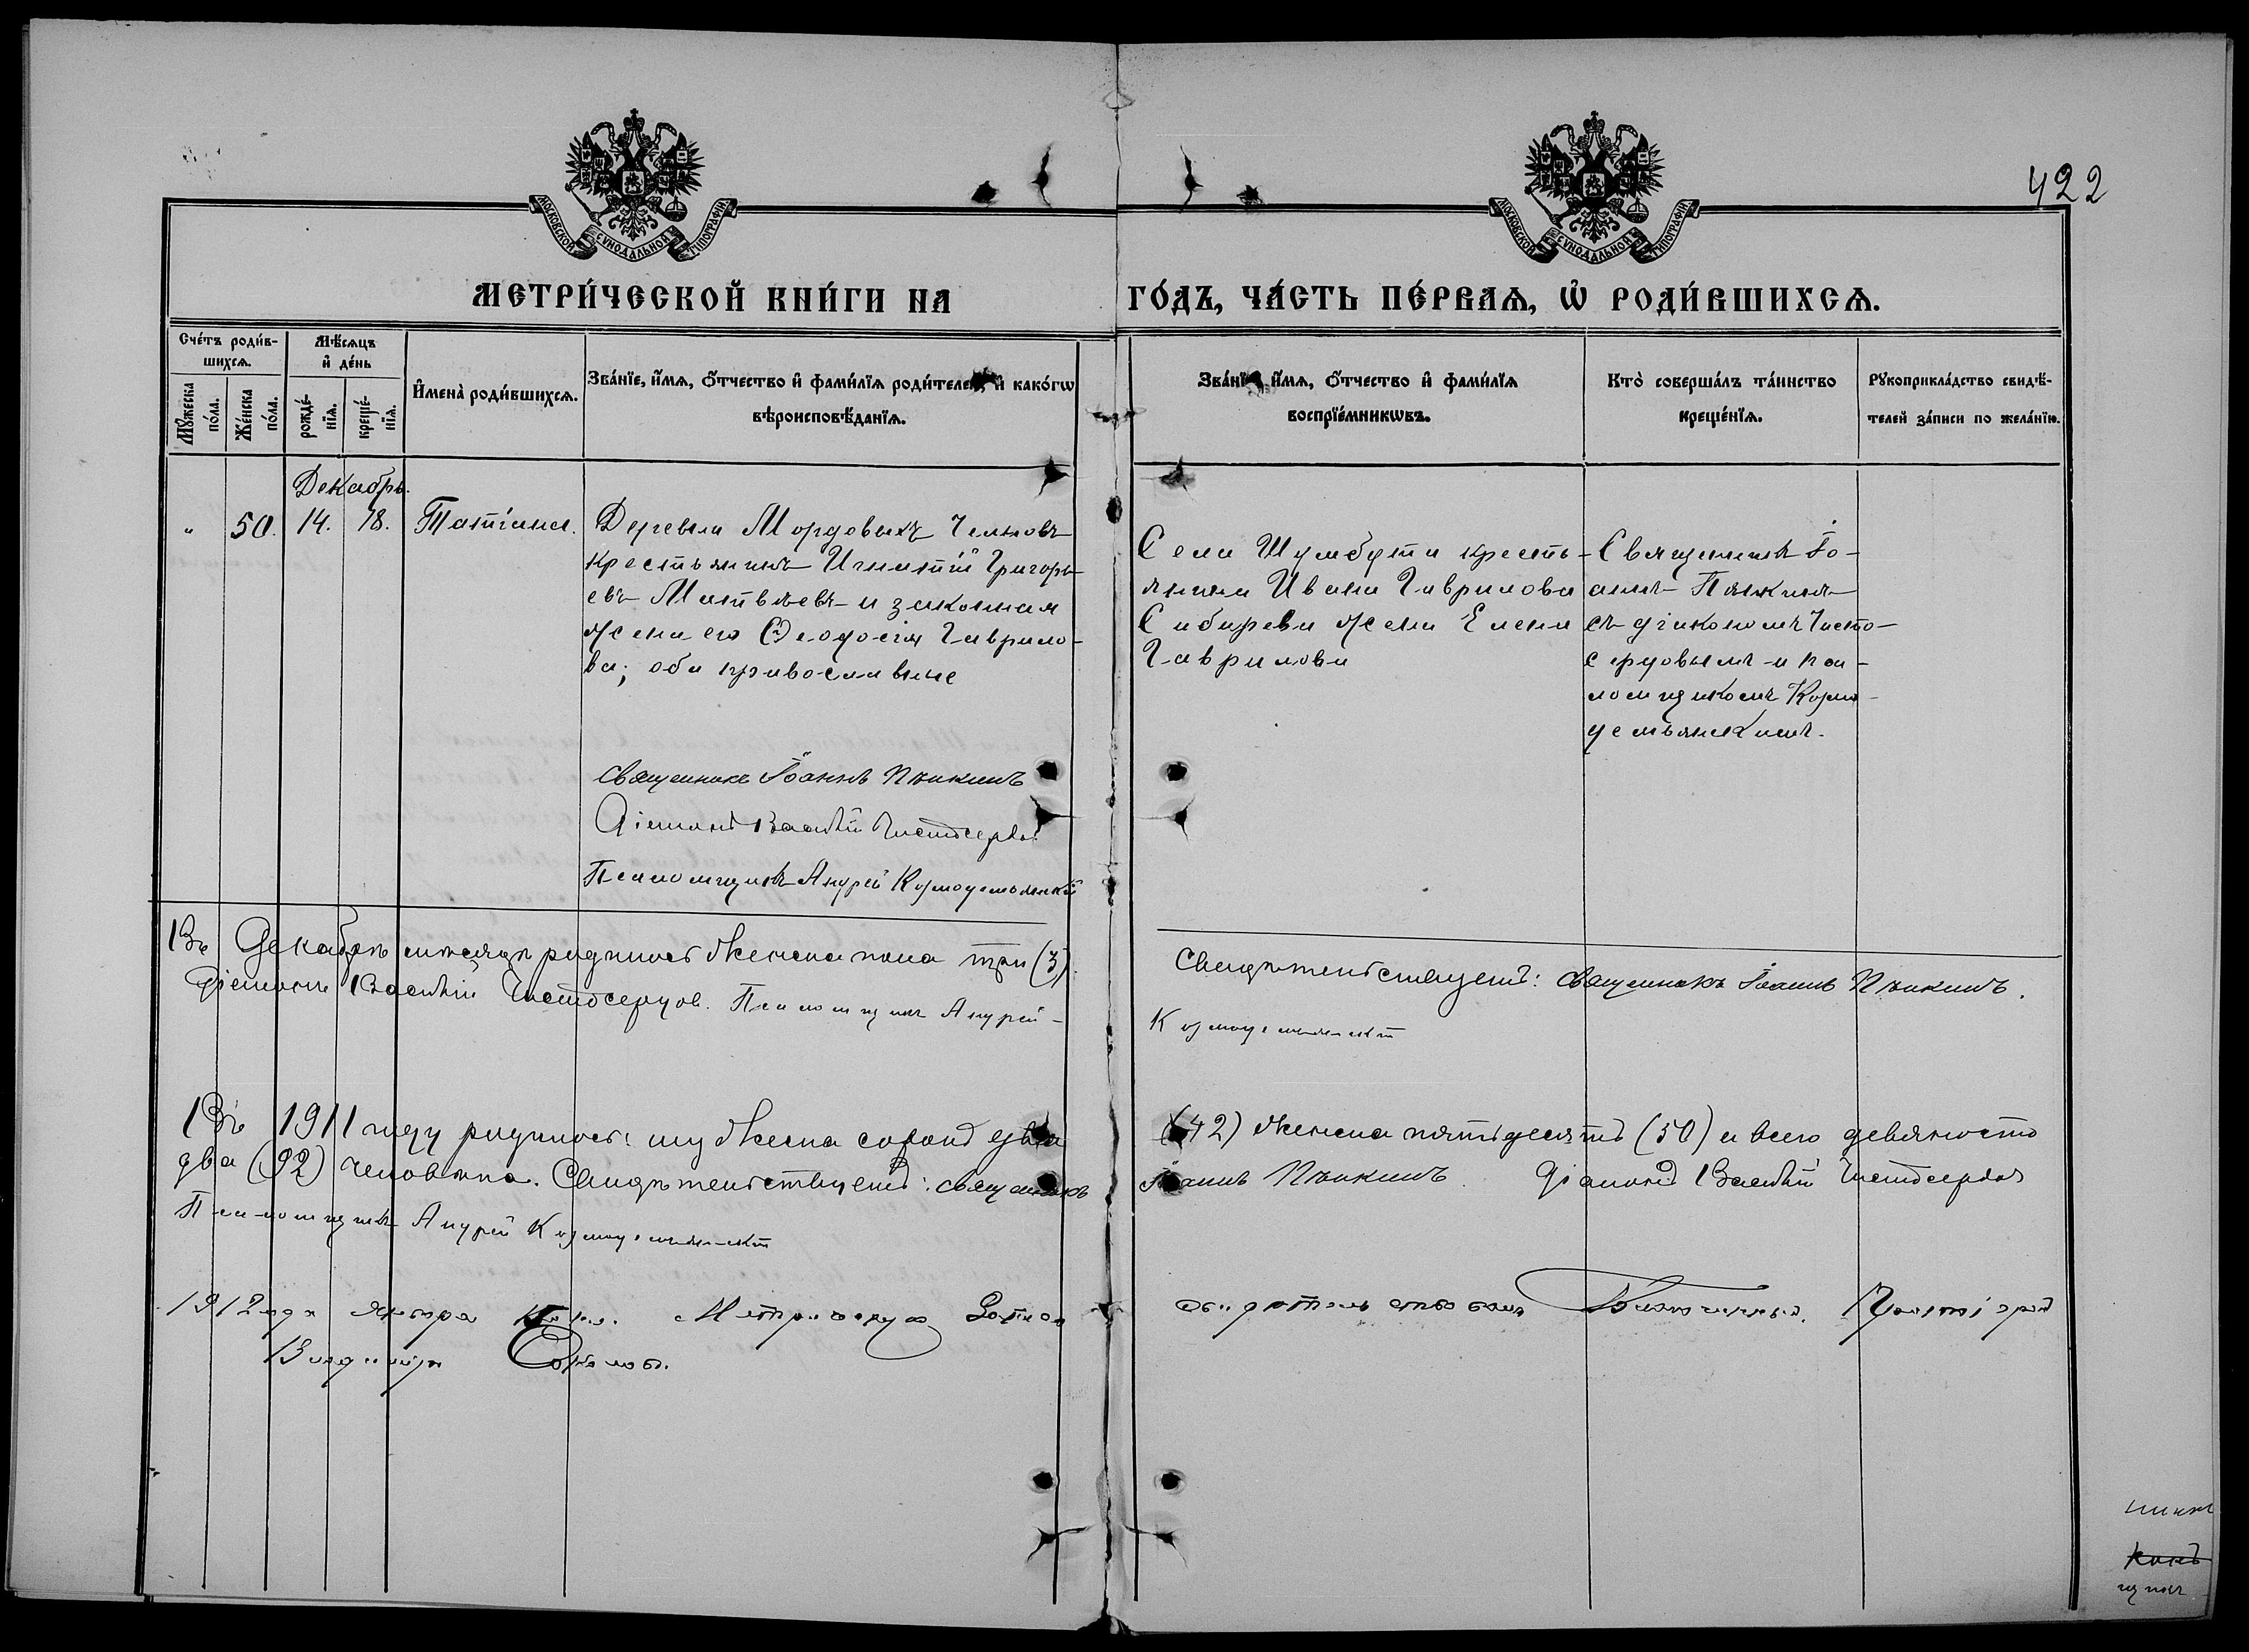 422
МОСКОВСКОЙ СѴНОДАЛЬНОЙ ТИПОГРАФІИ
МОСКОВСКОЙ СѴНОДАЛЬНОЙ ТИПОГРАФІИ
МЕТРИ́ЧЕСКОЙ КНИ́ГИ НА ГО́ДЪ, ЧА́СТЬ ПЕ́РВАѦ, Ѡ҆ РОДИ́ВШИХСѦ.
Сче́тъ роди́в-
шихсѧ.
Мꙋ́жеска по́ла.
Же́нска по́ла.
Мѣ́сѧцъ
и҆ де́нь
рожде́-
нїѧ.
креще́-
нїѧ.
И҆мена̀ роди́вшихсѧ.
Зва́нїе, и҆́мѧ, ѻ҆́тчество и҆ фами́лїѧ роди́телей, и҆ како́гѡ
вѣроисповѣ́данїѧ.
Зва́нїе, и҆́мѧ, ѻ҆́тчество и҆ фами́лїѧ
воспрїе́мникѡвъ.
Кто̀ соверша́лъ та́инство
креще́нїѧ.
Рꙋкоприкла́дство свидѣ́-
телей за́писи по жела́нїю.
Декабрь.
„ 50. 14. 18. Татіана.
Деревни Мордовыхъ Челновъ
крестьянинъ Игнатій Григорь-
евъ Матвѣевъ и законная
жена его Ѳеодосія Гаврило-
ва; оба православные
Села Шумбута кресть-
янина Ивана Гаврилова
Сибирева жена Елена
Гаврилова
Священникъ Іо-
аннъ Пѣнкинъ
съ діакономъ Чисто-
сердовымъ и пса-
ломщикомъ Козмо-
демьянскимъ.
Священникъ Іоаннъ Пѣнкинъ
Діаконъ Василій Чистосердов
Псаломщикъ Андрей Козмодемьянскій
Въ Декабрѣ мѣсяцѣ родилось женска пола три (3). Свидѣтельствуемъ: священникъ Іоаннъ Пѣнкинъ.
Діаконъ Василій Чистосердов. Псаломщикъ Андрей Козмодемьянскій
Въ 1911 году родилось: мужеска сорокъ два (42) женска пятьдесятъ (50) и всего девяносто
два (92) человѣка. Свидѣтельствуемъ: священникъ Іоаннъ Пѣнкинъ. Діаконъ Василій Чистосердов
Псаломщикъ Андрей Козмодемьянскій
1912 года Января Метрическую свидѣтельствовалъ Благочинный, Протоіерей
Соколовъ.
щикъ